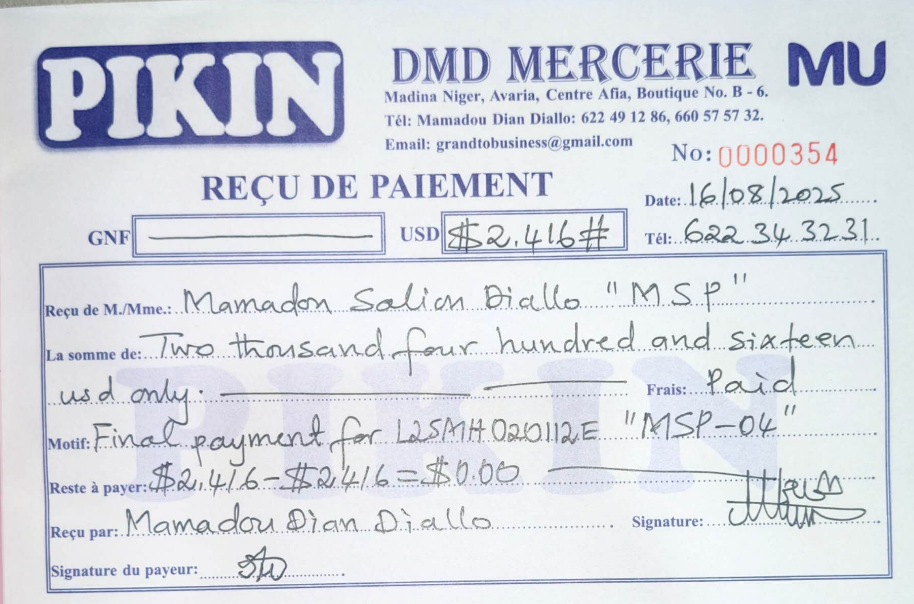 PIKIN
DMD MERCERIE
MU
Madina Niger, Avaria, Centre Afia, Boutique No. B - 6.
Tél: Mamadou Dian Diallo: 622 49 12 86, 660 57 57 32.
Email: grandtobusiness@gmail.com
No: 0000354
REÇU DE PAIEMENT
Date: 16/08/2025
GNF
USD $2.416#
Tél: 622 34 32 31
Reçu de M./Mme.: Mamadou Saliou Diallo "MSP"
La somme de: Two thousand four hundred and sixteen
usd only.
Frais: Paid
Motif: Final payment for L25MH020112E "MSP-04"
Reste à payer: $2,416-$2,416=$0.00
Reçu par: Mamadou Dian Diallo
Signature:
Signature du payeur:
PIKIN